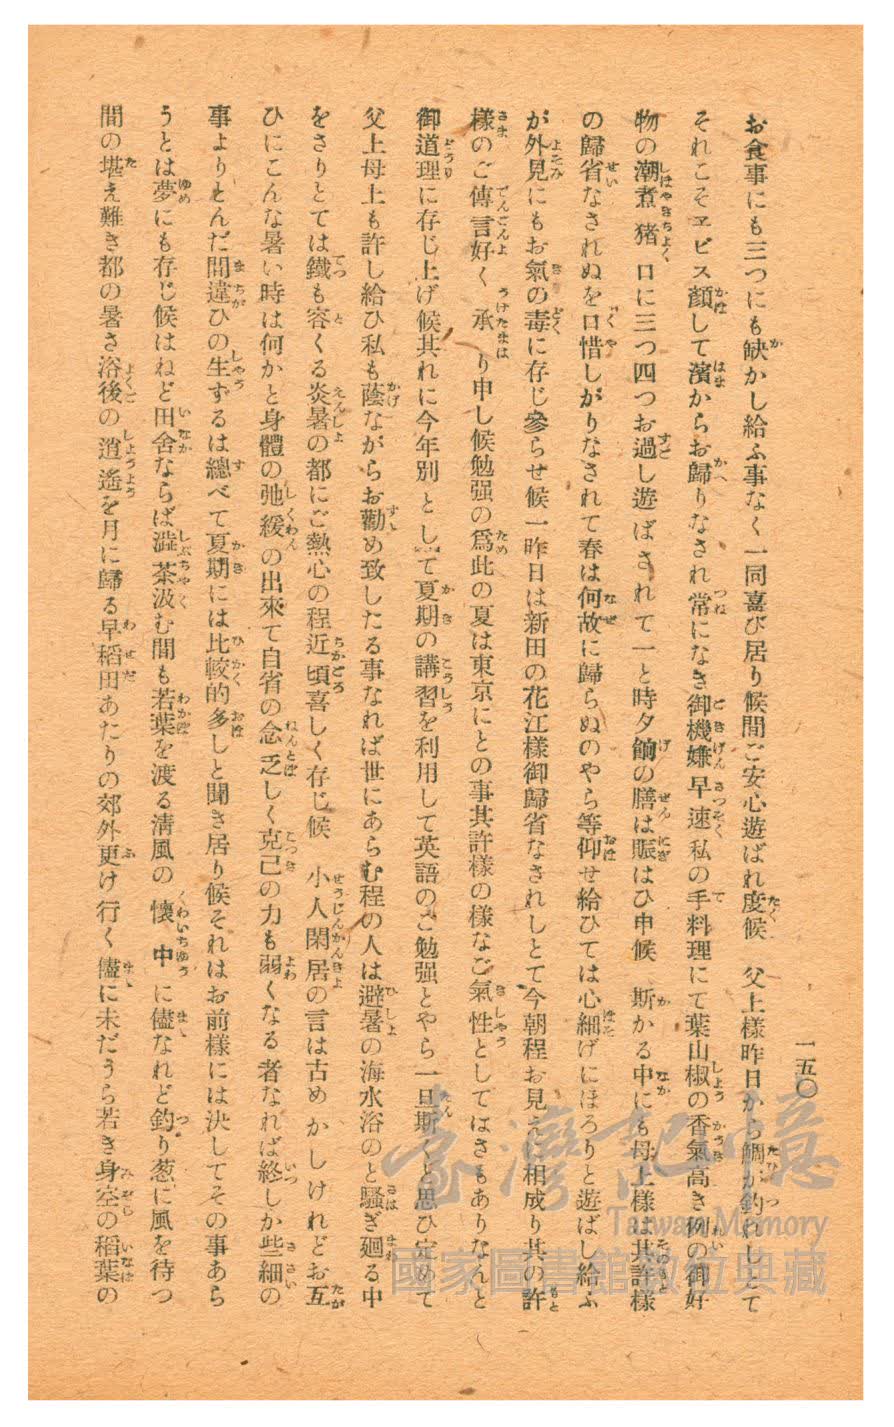 一五〇
お食事にも三つにも缺かし給ふ事なく一同喜び居り候間ご安心遊ばれ度候　父上樣昨日から鯛が釣れしとて
それこそヱビス顏して濱からお歸りなされ常になき御機嫌早速私の手料理にて葉山椒の香氣高き例の御好
物の潮煮猪口に三つ四つお過し遊ばされて一と時夕餉の膳は賑はひ申候　斯かる中にも母上樣は其許樣
の歸省なされぬを口惜しがりなされて春は何故に歸らぬのやら等仰せ給ひては心細げにほろりと遊ばし給ふ
が外見にもお氣の毒に存じ參らせ候一昨日は新田の花江樣御歸省なされしとて今朝程お見えに相成り其の許
樣のご傳言好く承り申し候勉强の爲此の夏は東京にとの事其許樣の樣なご氣性としてはさもありなんと
御道理に存じ上げ候其れに今年別として夏期の講習を利用して英語のご勉强とやら一旦斯くと思ひ定めて
父上母上も許し給ひ私も蔭ながらお勸め致したる事なれば世にあらむ程の人は避暑の海水浴のと騷ぎ廻る中
をさりとては鐵も容くる炎暑の都にご熱心の程近頃喜しく存じ候　小人閑居の言は古めかしけれどお互
ひにこんな暑い時は何かと身體の弛緩の出來て自省の念乏しく克己の力も弱くなる者なれば終しか些細の
事よりとんだ間違ひの生ずるは總べて夏期には比較的多しと聞き居り候それはお前樣には決してその事あら
うとは夢にも存じ候はねど田舍ならば澁茶汲む間も若葉を渡る淸風の懷中に儘なれど釣り葱に風を待つ
間の堪え難き都の暑さ浴後の逍遙を月に歸る早稻田あたりの郊外更け行く儘に未だうら若き身空の稻葉の
臺灣記憶
Taiwan Memory
國家圖書館數位典藏